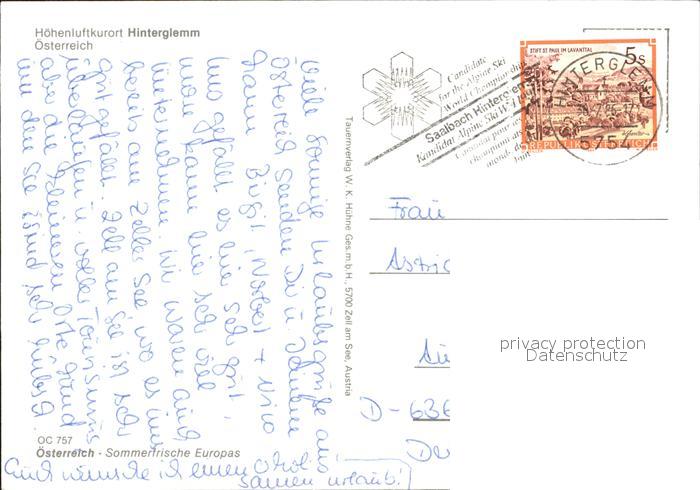 Höhenluftkurort Hinterglemm
Österreich
Viele sonnige Urlaubsgrüße aus
Österreich senden Dir u. Deinen
Birgit, Norbert + Nico
Uns gefällt es hier sehr gut,
man kann hier sehr viel
unternehmen. Wir waren auch
bereits am Zeller See wo es uns
gut gefällt. Zell am See ist sehr
überlaufen u. voller Tourismus
aber die kleineren Orte rund
um den See sind sehr hübsch.
Euch wünsche ich einen
samen Urlaub!
OC 757
Österreich - Sommerfrische Europas
Tauernverlag W. K. Hühne Ges.m.b.H., 5700 Zell am See, Austria
Candidate
for the Alpine Ski
World Champion ship
Saalbach Hinterglemm
Kandidat Alpine Ski WM
STIFT ST. PAUL IM LAVANTTAL
5s
REPUBLIK ÖSTERREICH
HINTERGLEMM
5754
Frau
Astrid
D-636
privacy protection
Datenschutz